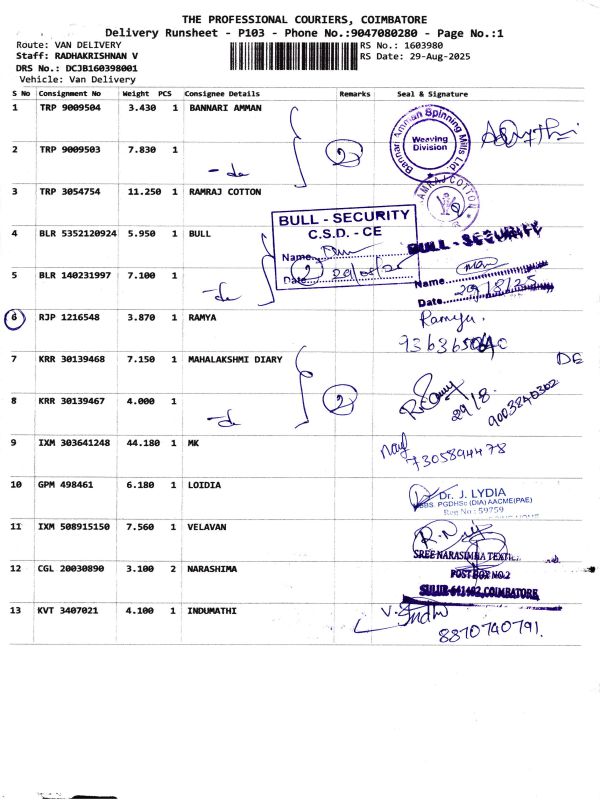 THE PROFESSIONAL COURIERS, COIMBATORE
Delivery Runsheet - P103 - Phone No.:9047080280 - Page No.:1
Route: VAN DELIVERY RS No.: 1603980
Staff: RADHAKRISHNAN V RS Date: 29-Aug-2025
DRS No.: DCJB160398001
Vehicle: Van Delivery
S No Consignment No Weight PCS Consignee Details Remarks Seal & Signature
1 TRP 9009504 3.430 1 BANNARI AMMAN
Bannari Amman Spinning Mills Ltd
Weaving
Division
2 TRP 9009503 7.830 1 -do 2
3 TRP 3054754 11.250 1 RAMRAJ COTTON
RAMRAJ COTTON
BULL - SECURITY
C.S.D. - CE
Name
Date 29/08/25
2
4 BLR 5352120924 5.950 1 BULL BULL - SECURITY
5 BLR 140231997 7.100 1 -do
Name
Date 29/8/25
6 RJP 1216548 3.870 1 RAMYA Ramya.
7 KRR 30139468 7.150 1 MAHALAKSHMI DIARY DE
29/8. 9003240302
8 KRR 30139467 4.000 1 -do 2
9 IXM 303641248 44.180 1 MK
7305894478
10 GPM 498461 6.180 1 LOIDIA Dr. J. LYDIA
MBBS. PGDHSc (DIA) AACME(PAE)
Reg No : 59759
11 IXM 508915150 7.560 1 VELAVAN
SREE NARASIMHA TEXTIL
12 CGL 20030890 3.100 2 NARASHIMA POST BOX NO.2
SULUR-641402, COIMBATORE
13 KVT 3407021 4.100 1 INDUMATHI V. Indhu
8870740791.